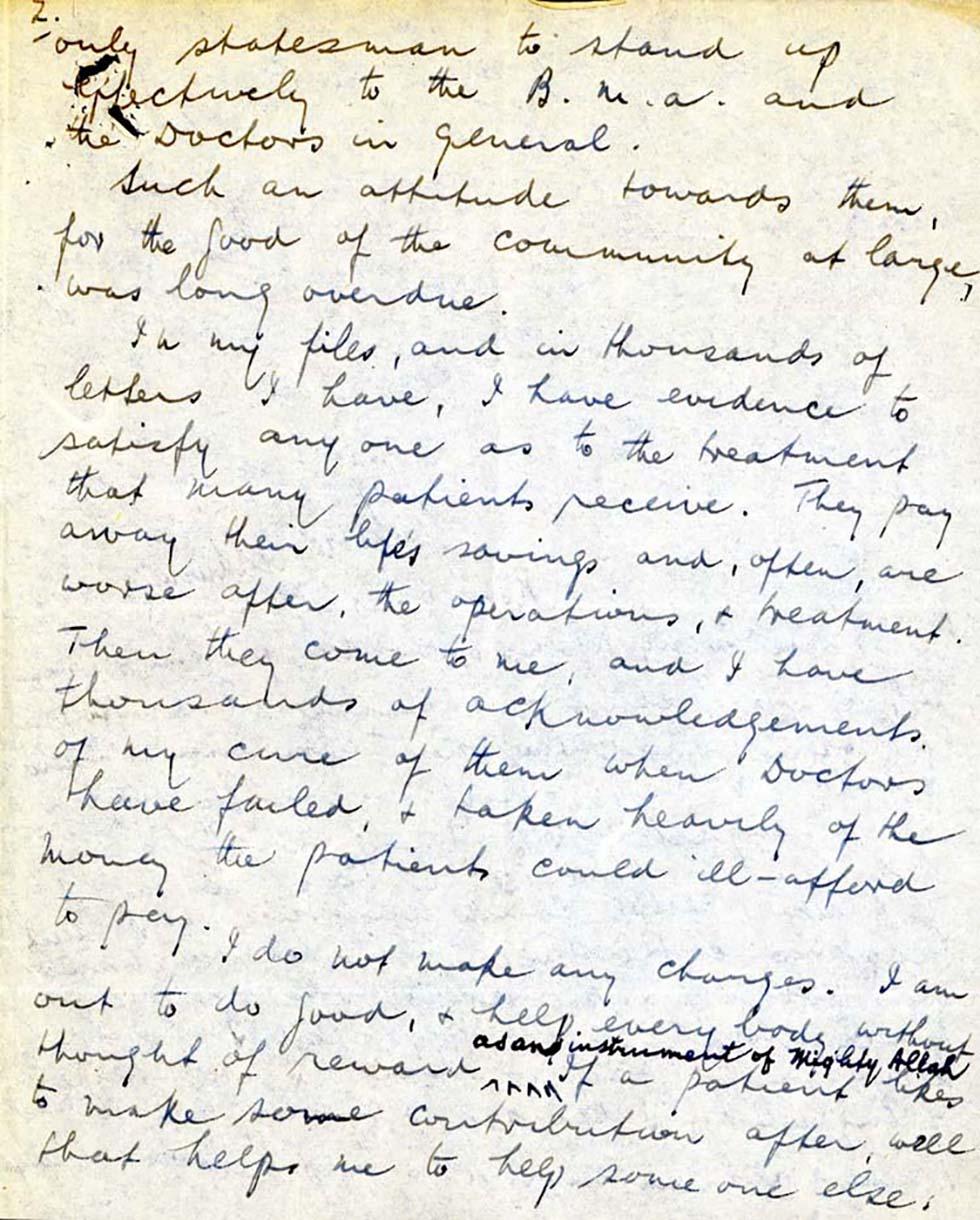 2.
only statesman to stand up
effectively to the B.M.A. and
the Doctors in general.
Such an attitude towards them,
for the good of the community at large,
was long overdue.
In my files, and in thousands of
letters I have, I have evidence to
satisfy anyone as to the treatment
that many patients receive. They pay
away their life's savings and, often, are
worse after, the operations, & treatment.
Then they come to me, and I have
thousands of acknowledgements
of my cure of them when Doctors
have failed, & taken heavily of the
money the patients could ill-afford
to pay.
I do not make any charges. I am
out to do good, & help every body without
as an instrument of Mighty Allah
thought of reward. If a patient likes
to make some contribution after, well
that helps me to help some one else.